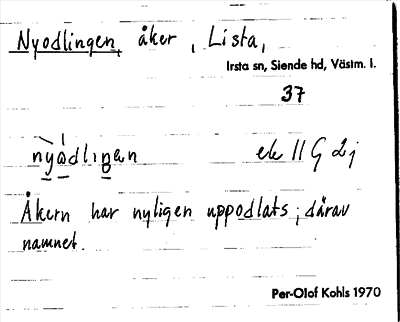 Nyodlingen, åker, Lista,
Irsta sn, Siende hd, Västm. l.
37
nyådlingan ek 11 G 2j
Åkern har nyligen uppodlats; därav
namnet.
Per-Olof Kohls 1970